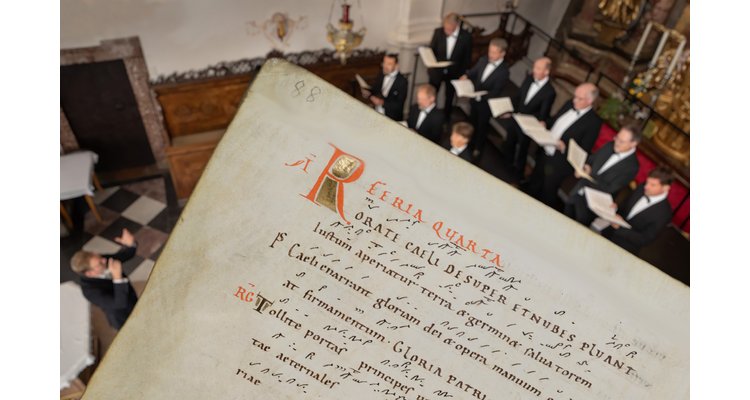 88
Ā FERIA QUARTA
RORATE CAELI DESUPER ETNUBES PLUANT
Iustum aperiatur terra & germin& saluatorem
PS Caeli enarrant gloriam dei & opera manuum
at firmamentum. GLORIA PATRI
RG Tollite portas principes
tae aeternales
riae